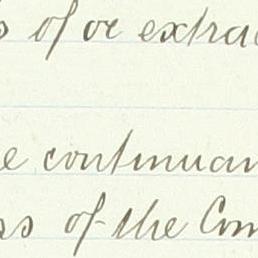 s of or extrac
e continuan
ss of the Com